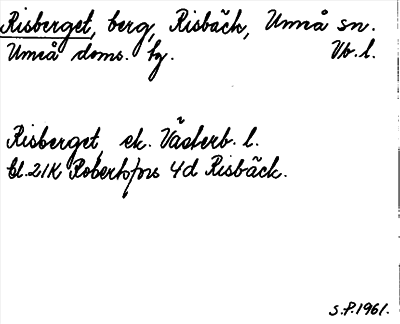 Risberget, berg, Risbäck, Umeå sn.
Umeå doms. hg. Vb. l.
Risberget, ek. Västerb. l.
bl. 21K Robertsfors 4d Risbäck.
S.P. 1961.